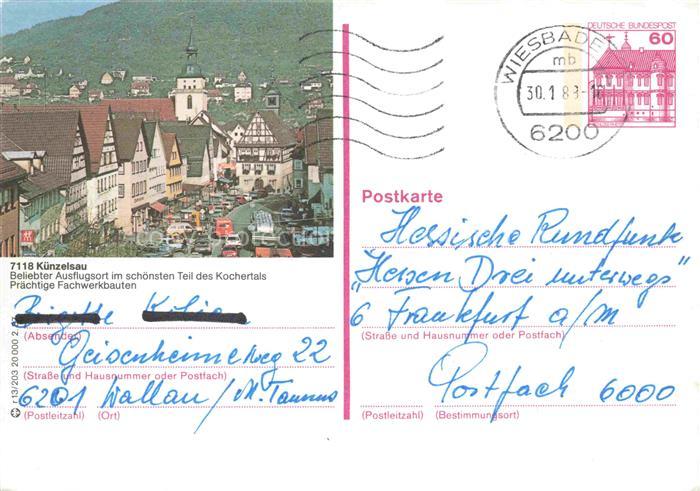 DEUTSCHE BUNDESPOST
60
WIESBADEN
mb
30.1.83-
6200
Postkarte
7118 Künzelsau
Beliebter Ausflugsort im schönsten Teil des Kochertals
Prächtige Fachwerkbauten
(Absender)
Geisenheimerweg 22
(Straße und Hausnummer oder Postfach)
6201 Wallau / M. Taunus
(Postleitzahl) (Ort)
Hessische Rundfunk
"Hessen Drei unterwegs"
6 Frankfurt a/M
(Straße und Hausnummer oder Postfach)
Postfach 6000
(Postleitzahl) (Bestimmungsort)